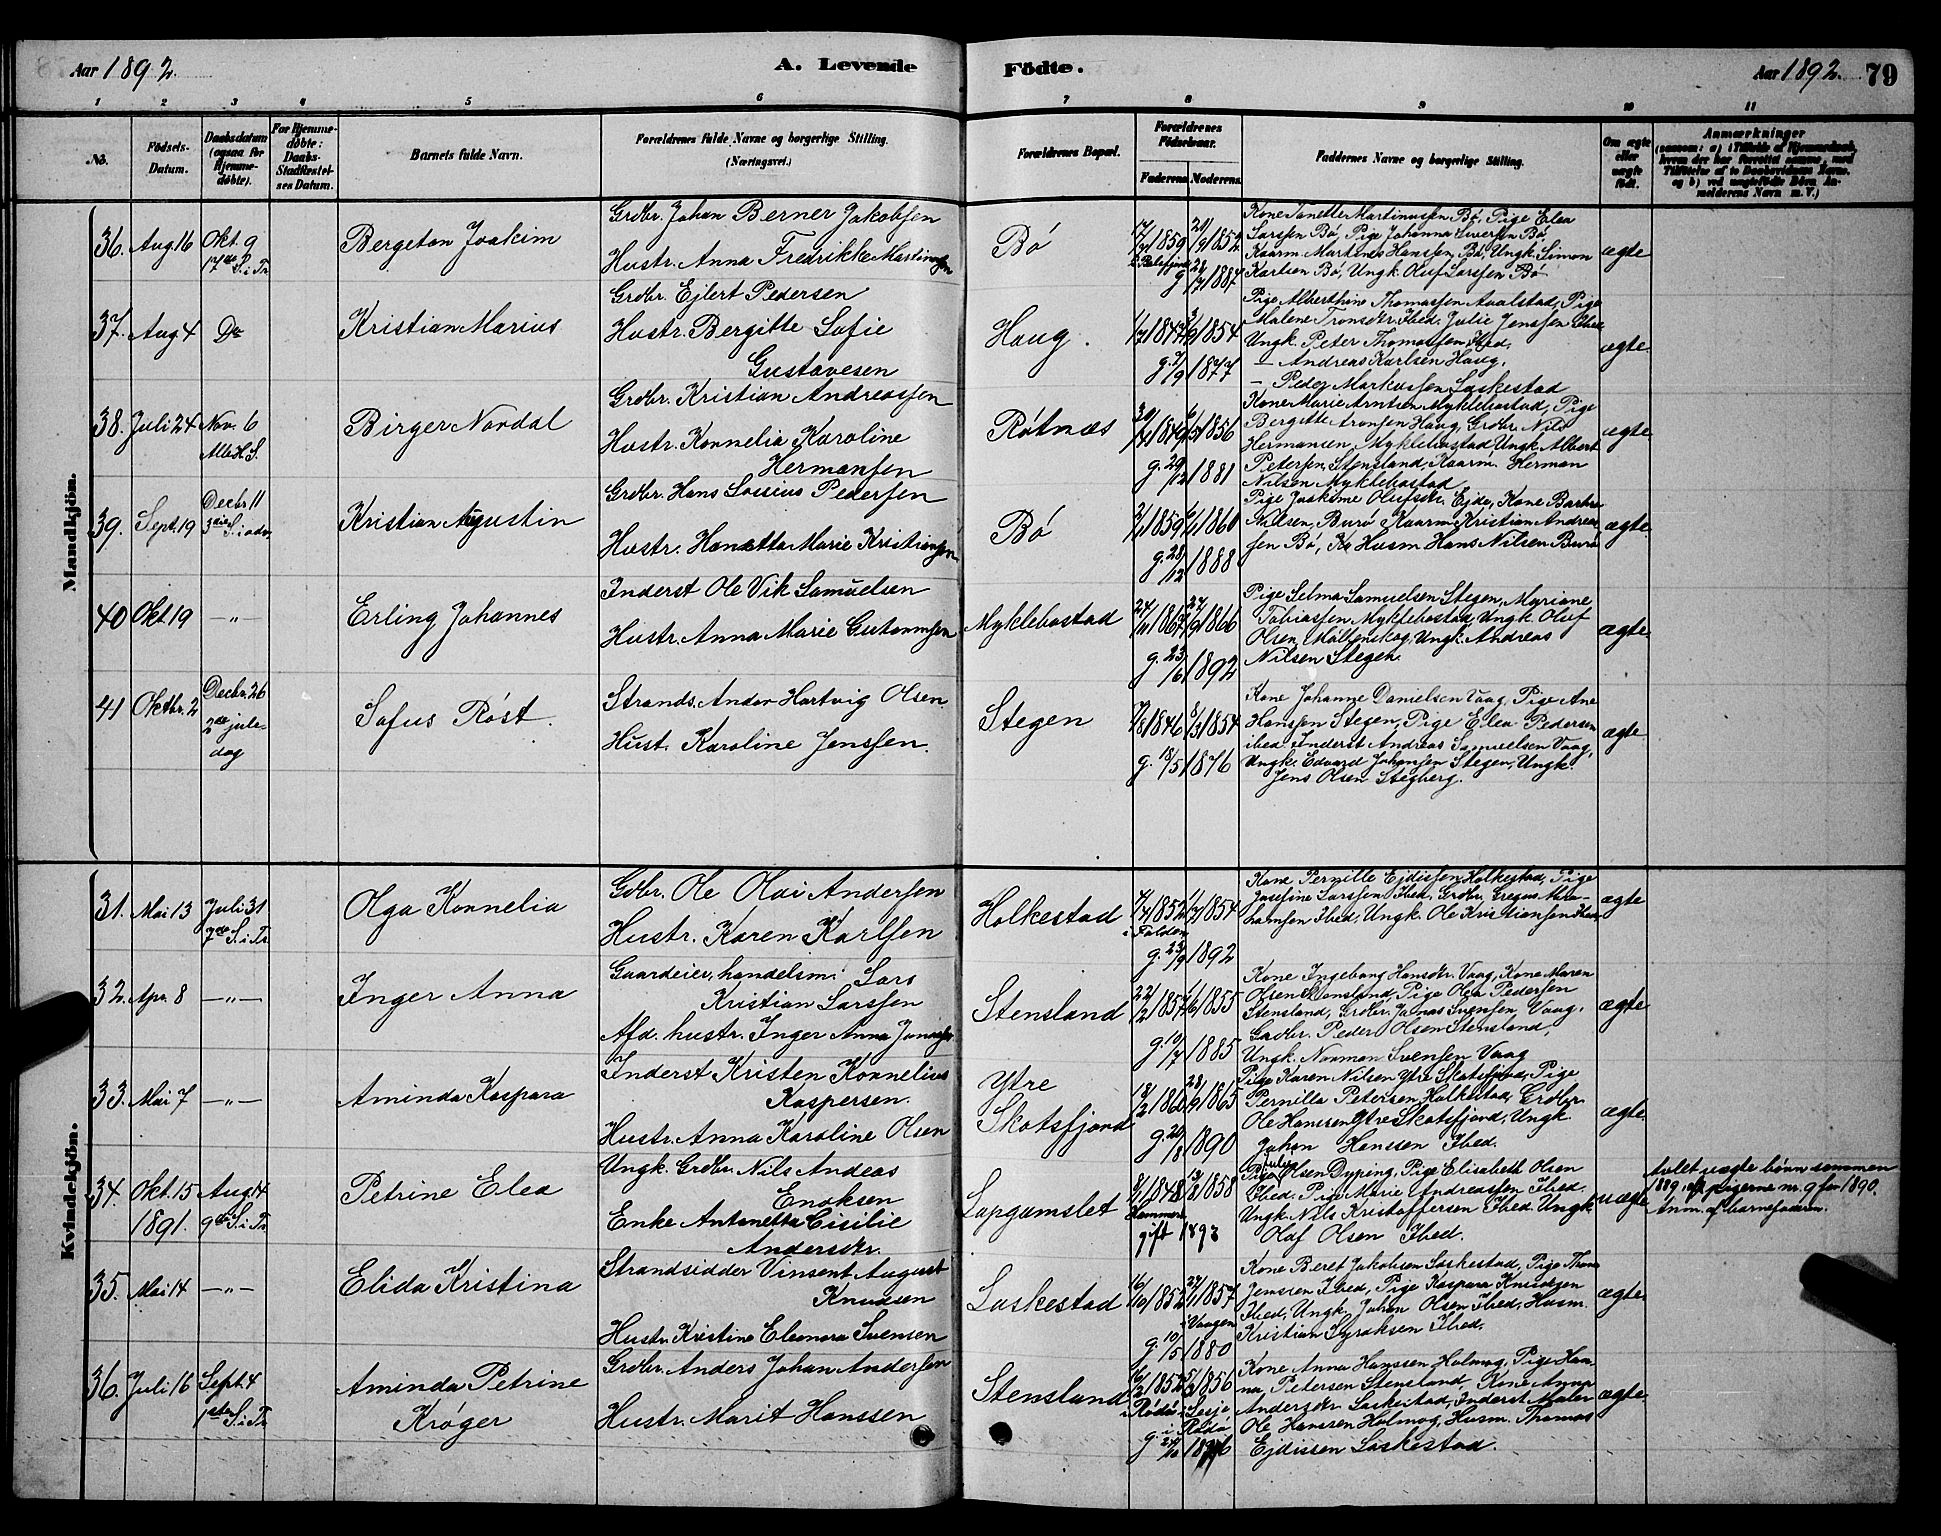 Aar 1892.
A. Levende Födte.
Aar 1892. 79
1 2 3 4 5 6 7 8 9 10 11
No.
Födsels-Datum.
Daabsdatum (ogsaa for Hjemme-döbte).
For Hjemme-döbte: Daabs-Stadfæstel-ses Datum.
Barnets fulde Navn.
Forældrenes fulde Navne og borgerlige Stilling.
(Næringsvei.)
Forældrenes Bopæl.
Forældrenes Födselsaar.
Faderens. Moderens.
Faddernes Navne og borgerlige Stilling.
Om ægte eller uægte födt.
Anmærkninger
(saasom: a) i Tilfælde af Hjemmedaab, hvem der har forrettet samme, med Tilföielse af to Daabsvidners Navne, og b) ved uægtefödte Börn Anmelderens Navn m. V.)
Mandkjön.
36. Aug 16 Okt. 9
17de S. i Tr.
Bergeton Joakim
Grdbr. Johan Berner Jakobsen
Hustr. Anna Fredrikke Martinussen
Bö
1859 1852
g 1887
Kone Tanette Martinussen Bö, Pige Elea
Larssen Bö, Pige Johanna Sivertsen Bö
Kaarm Martines Hanssen, Bö, Ungk. Simon
Karlsen Bö, Ungk Oluf Larssen Bö
ægte
37. Aug 4 Do
Kristian Marius
Grdbr. Ejlert Pedersen
Hustr. Bergitte Sofie
Gustavesen
Haug.
1847 1854
g. 1877
Pige Alberthine Thomassen Aaalstad, Pige
Malene Tronsdtr Ibed. Julie Jenssen Ibed
Ungk. Peter Thomassen Ibed.
— Andreas Karlsen Haug.
— Peder Markussen Laskestad
ægte
38. Juli 24 Nov. 6
Alle H. S.
Birger Nordal
Grdbr. Kristian Andreassen
Hustr. Kornelia Karoline
Hermansen
Rötnæs
1849 1856
g. 29/12 1881
Kone Marie Arntsen Myklebostad, Pige
Bergitte Aronsen Haug, Grdbr. Nils
Hermansen Myklebostad, Ungk Albert
Petersen, Stensland, Kaarm. Herman
Nilsen Myklebostad
ægte
39. Sept. 19 Decbr. 11
3die S. i adv.
Kristian Agustin
Grdbr. Hans Lossius Pedersen
Hustr. Hansetta Marie Kristiansen
Bö
1859 1860
g. 28/12 1888
Pige Jaskine Olufsdtr. Ejde, Kone Barbra
Nilsen, Burö Kaarm Kristian Andreas-
sen Bö, Husm Hans Nilsen Burö
ægte
40 Okt. 19 — " —
Erling Johannes
Inderst Ole Vik Samuelsen
Hustr. Anna Marie Gutormsen
Myklebostad
1867 1866
g. 23/6 1892
Pige Selma Samuelsen Stegen, Myriane
Tobiassen Myklebostad, Ungk. Oluf
Olsen, Mollenskog, Ungk. Andreas
Nilsen Stegen.
ægte
41 Oktbr. 2 Decbr. 26
2den jule-
dag
Sofus Röst.
Strands. Andor Hartvig Olsen
Hust. Karoline Jenssen.
Stegen
1846 1854
g. 1876
Kone Johanne Danielsen Vaag, Pige Ane
Hanssen Stegen, Pige Elea Pedersen
ibed. Inderst Andreas Samuelsen Vaag,
Ungk. Edvard Johansen Stegen, Ungk.
Jens Olsen Stegberg.
ægte
Kvindekjön.
31. Mai 13 Juli 31
7de S. i Tr.
Olga Kornelia
Gdbr. Ole Olai Andersen
Hustr. Karen Karlsen
Holkestad
1852 1854
i Folden
g. 1892
Kone Pernille Ejdissen Holkestad, Pige
Josefine Larssen Ibed, Grdbr. Gregus Abra-
hamsen Ibed, Ungk. Ole Kristiansen Ibed
ægte
32. Apr. 8 — " —
Inger Anna
Gaardeier, handelsm. Lars
Kristian Larssen
Afd. hustr. Inger Anna Jonassen
Stensland
1857 1855
g. 10/7 1885
Kone Ingeborg Hansdtr. Vaag, Kone Maren
Olsen Stensland, Pige Olea Pedersen
Stensland, Grdbr. Jonas Svensen, Vaag.
Gaardbr. Peder Olsen Stensland,
Ungk. Norman Svensen Vaag
ægte
33. Mai 7 — " —
Aminda Kaspara
Inderst Kristen Kornelius
Kaspersen.
Hustr. Anna Karoline Olsen
Ytre
Skotsfjord
1860 1865
g. 1890
Pige Karen Nilsen Ytre Skotsfjord, Pige
Pernilla Petersen Holkestad, Grdbr.
Ole Hanssen Ytre Skotsfjord, Ungk.
Johan Hanssen Ibed.
ægte.
34. Okt. 15 Aug. 14
1891. 9de S. i Tr.
Petrine Elea
Ungk. Grdbr. Nils Andeas
Enoksen
Enke Antonetta Cisilie
Andersdtr.
Lapgamslet
1848 1858
Hammerö
gift 1893
Pige Olsen Dyping, Pige Elisabeth Olsen
Ibed. Pige Marie Andreassen Ibed.
Ungk. Nils Kristoffersen Ibed, Ungk
Olaf Olsen Ibed.
uægte
Avlet uægte börn sammen
1889 af pigerne nr. 9 for 1890.
Anm. af barnefaderen.
35. Mai 14 — " —
Elida Kristina
Strandsidder Vinsent August
Knudsen
Hustr. Kristine Eleonora Svensen
Laskestad
16/10 1852 1857
i Vaagen
g. 10/5 1880
Kone Beret Jakobsen Laskestad, Pige Thona
Jenssen Ibed, Pige Kaspara Knudsen
Ibed, Ungk Johan Olsen Ibed, Husm.
Kristian Syraksen Ibed.
ægte.
36. Juli 16 Sept. 4
1ste S. i Tr.
Aminda Petrine
Kröger
Grdbr. Anders Johan Andersen
Hustr. Marit Hanssen
Stensland
1852 1856
i Rödö Lesje
g. i Rödö
1876
Kone Anna Hanssen Holmog, Pige Han-
na Petersen Stensland, Kone Anna
Andersdtr Laskestad, Inderst Maler
Ole Hanssen Holmog, Husm. Thomas
Ejdissen Laskestad.
ægte.